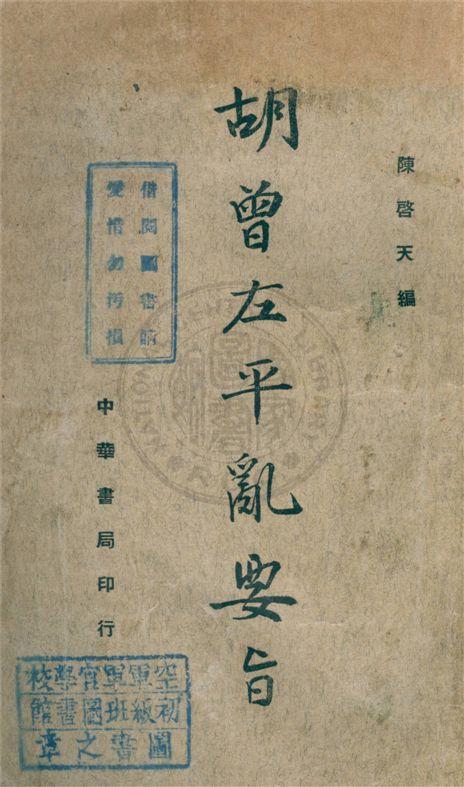 陳啓天編
胡曾左平亂要旨
借閱圖書請
愛惜勿污損
中華書局印行
空軍軍官學校
初級班圖書館
圖書之章